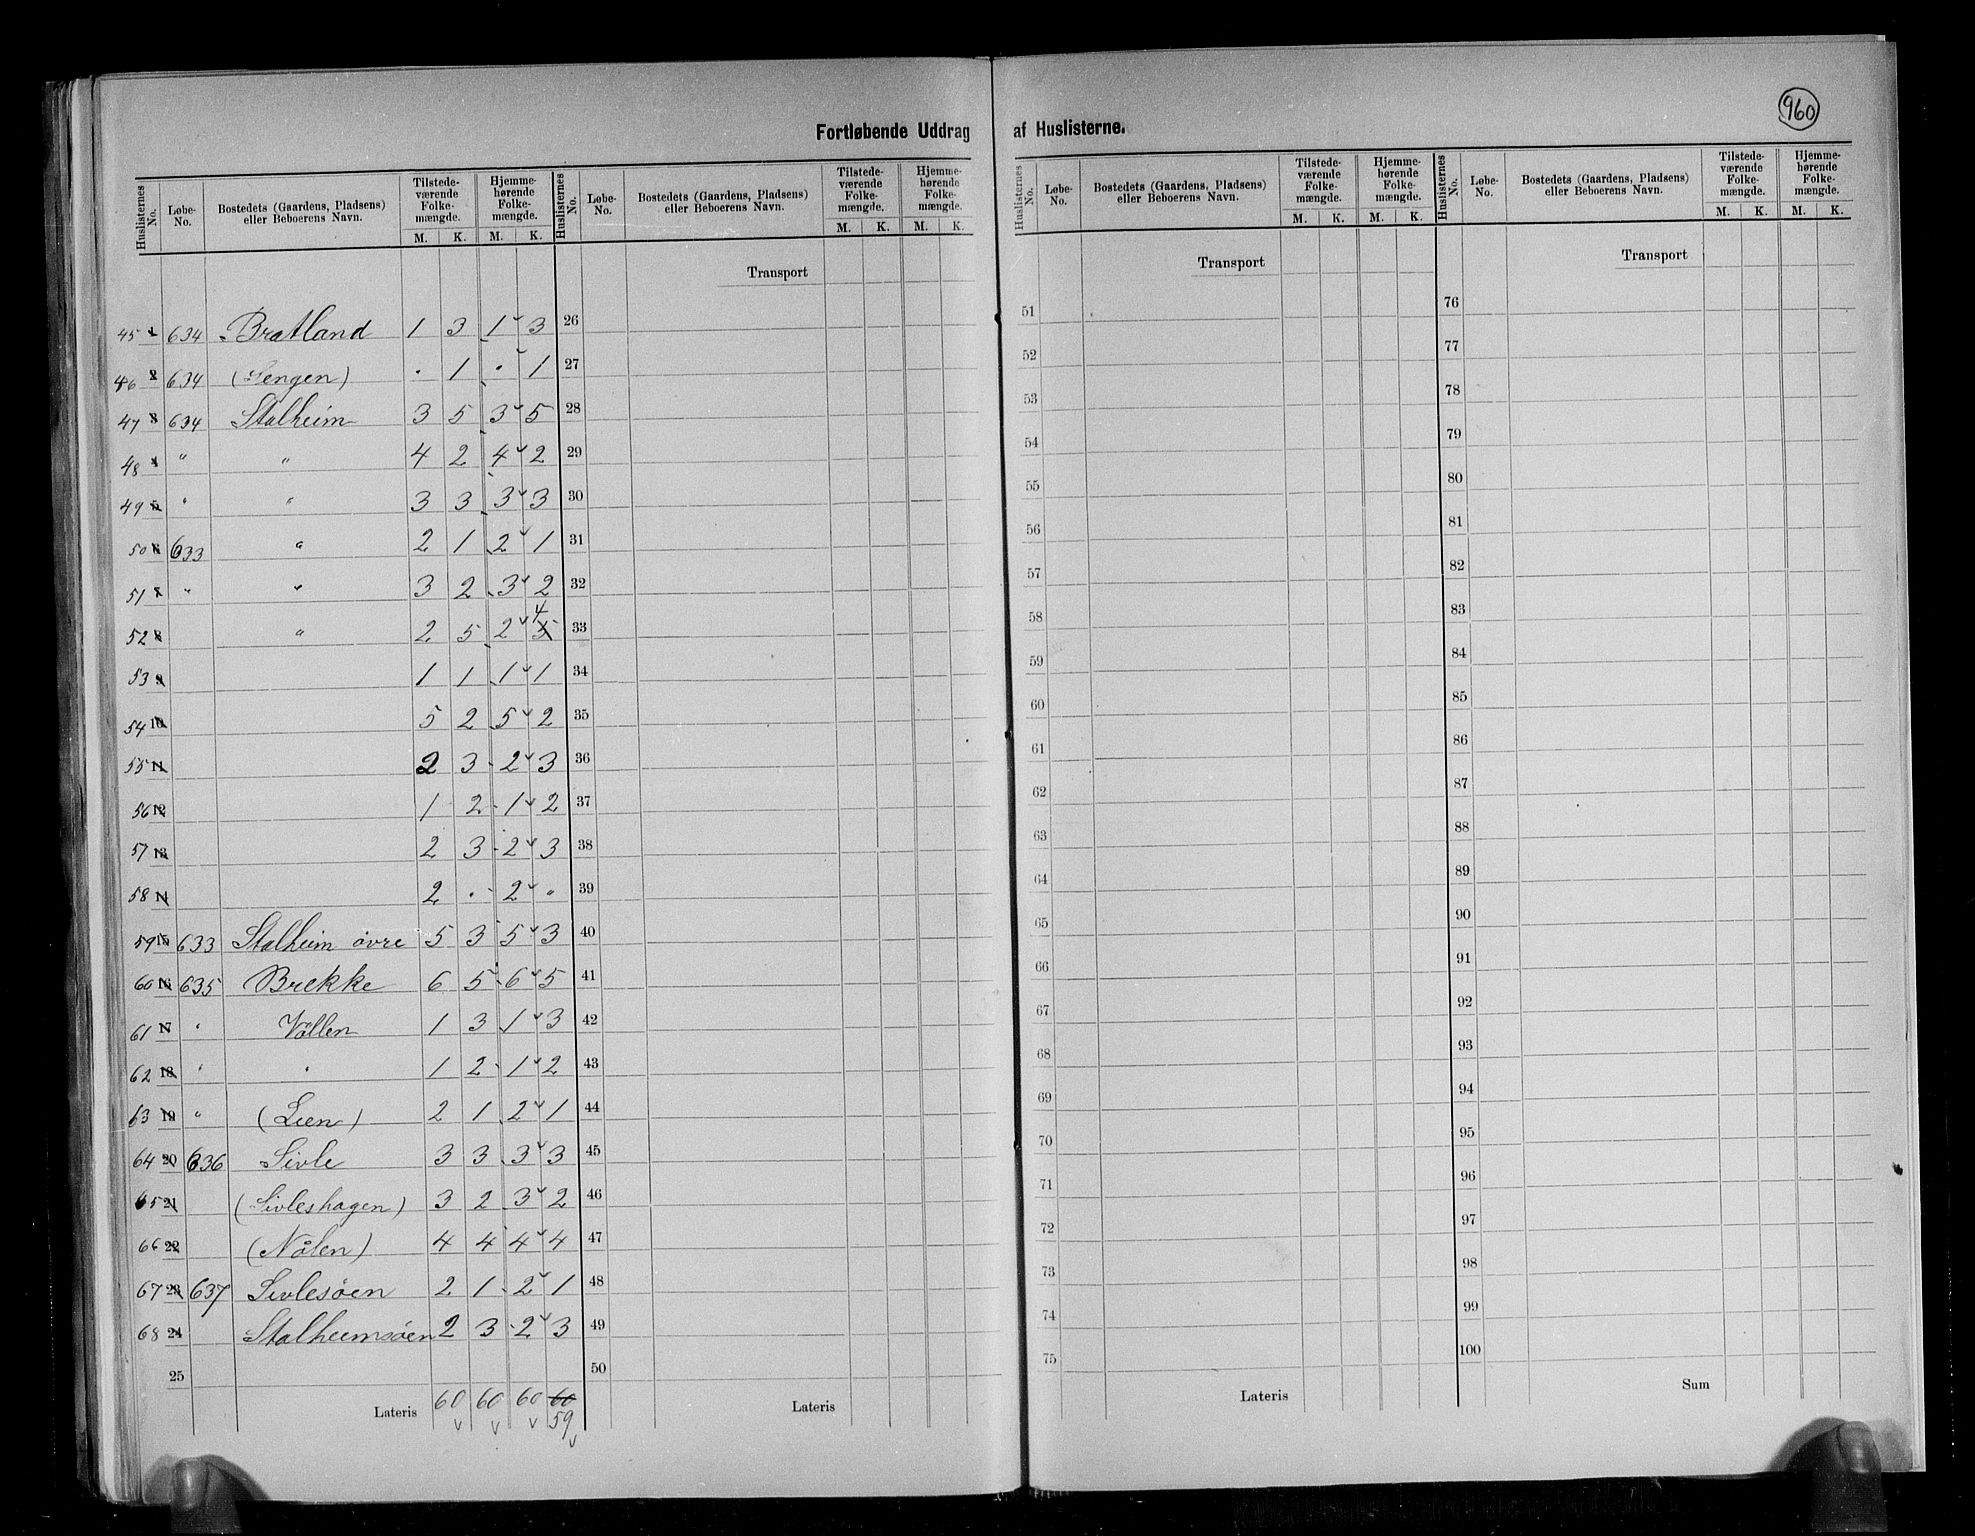 960
Fortløbende Uddrag af Huslisterne.
Huslisternes No. Løbe-No. Bostedets (Gaardens, Pladsens) eller Beboerens Navn. Tilstede-værende Folke-mængde. M. K. Hjemme-hørende Folke-mængde. M. K.
Huslisternes No. Løbe-No. Bostedets (Gaardens, Pladsens) eller Beboerens Navn. Tilstede-værende Folke-mængde. M. K. Hjemme-hørende Folke-mængde. M. K.
Huslisternes No. Løbe-No. Bostedets (Gaardens, Pladsens) eller Beboerens Navn. Tilstede-værende Folke-mængde. M. K. Hjemme-hørende Folke-mængde. M. K.
Huslisternes No. Løbe-No. Bostedets (Gaardens, Pladsens) eller Beboerens Navn. Tilstede-værende Folke-mængde. M. K. Hjemme-hørende Folke-mængde. M. K.
Transport Transport Transport
45 1 634 Bratland 1 3 1 3 26 51 76
46 2 634 (Lengen) . 1 . 1 27 52 77
47 3 634 Stalheim 3 5 3 5 28 53 78
48 4 " " 4 2 4 2 29 54 79
49 5 " " 3 3 3 3 30 55 80
50 6 633 " 2 1 2 1 31 56 81
51 7 " " 3 2 3 2 32 57 82
52 8 " 2 5 2 5 4 33 58 83
53 9 1 1 1 1 34 59 84
54 10 5 2 5 2 35 60 85
55 11 2 3 2 3 36 61 86
56 12 1 2 1 2 37 62 87
57 13 2 3 2 3 38 63 88
58 14 2 . 2 " 39 64 89
59 15 633 Stalheim øvre 5 3 5 3 40 65 90
60 16 635 Brekke 6 5 6 5 41 66 91
61 17 " Vøllen 1 3 1 3 42 67 92
62 18 " " 1 2 1 2 43 68 93
63 19 " (Lien) 2 1 2 1 44 69 94
64 20 636 Sivle 3 3 3 3 45 70 95
65 21 (Sivleshagen) 3 2 3 2 46 71 96
66 22 (Nålen) 4 4 4 4 47 72 97
67 23 637 Sivlesøen 2 1 2 1 48 73 98
68 24 Stalheimsøen 2 3 2 3 49 74 99
25 50 75 100
Lateris 60 60 60 60 Lateris Lateris Sum
59